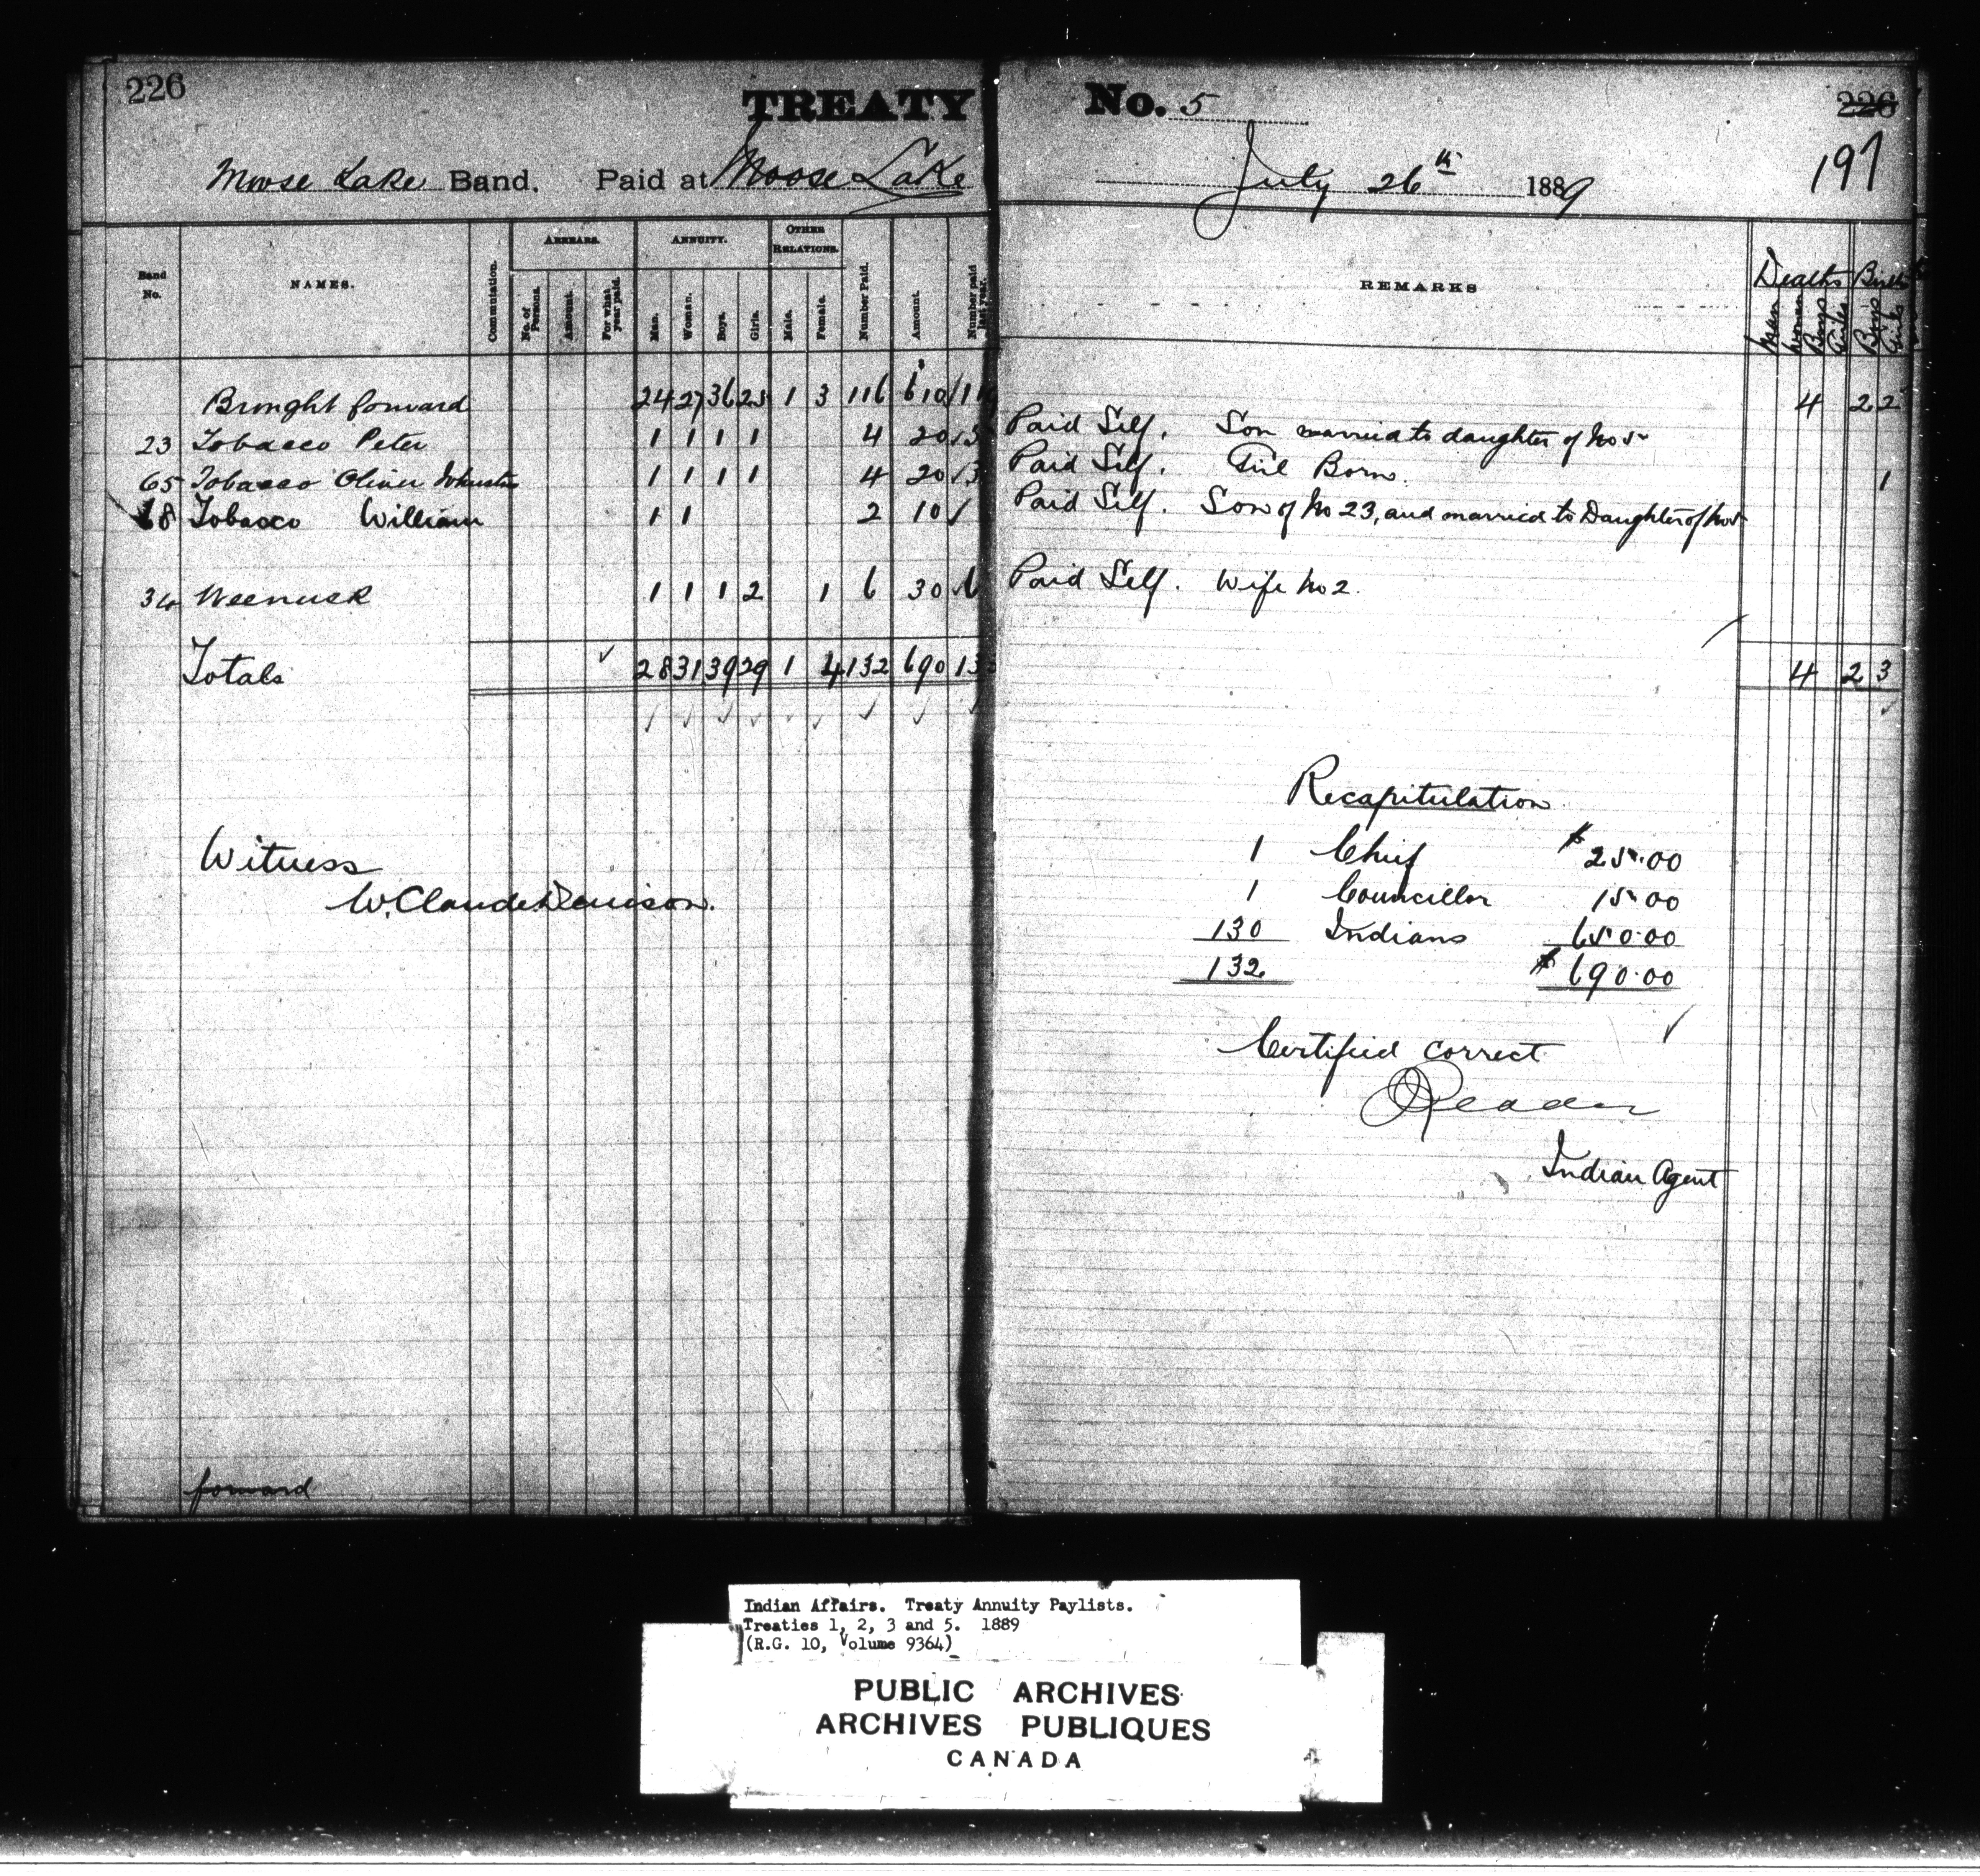 226 TREATY No. 5 226
197
Moose Lake Band. Paid at Moose Lake July 26th 1889
Band No. NAMES. Commutation. ARREARS. No. of Persons. Amount. For what year paid. ANNUITY. Man. Woman. Boys. Girls. OTHER RELATIONS. Male. Female. Number Paid. Amount. Number paid last year. REMARKS Deaths Men Women Boys Girls Births Boys Girls
Brought forward 24 27 36 25 1 3 116 610 4 2 2
23 Tobacco Peter 1 1 1 1 4 20 Paid Self. Son married to daughter of No 5
65 Tobacco Oliver Johnston 1 1 1 1 4 20 3 Paid Self. Girl Born. 1
68 Tobacco William 1 1 2 10 Paid Self. Son of No 23, and married to Daughter of No 5
34 Weenusk 1 1 1 2 1 6 30 6 Paid Self. Wife No 2.
Totals 28 31 39 29 1 4 132 690 4 2 3
Recapitulation
1 Chief $ 25.00
1 Councillor 15.00
130 Indians 650.00
132 $ 690.00
Witness
W. Claude Denison.
Certified correct
Reader
Indian Agent
forward
Indian Affairs. Treaty Annuity Paylists.
Treaties 1, 2, 3 and 5. 1889
(R.G. 10, Volume 9364)
PUBLIC ARCHIVES
ARCHIVES PUBLIQUES
CANADA